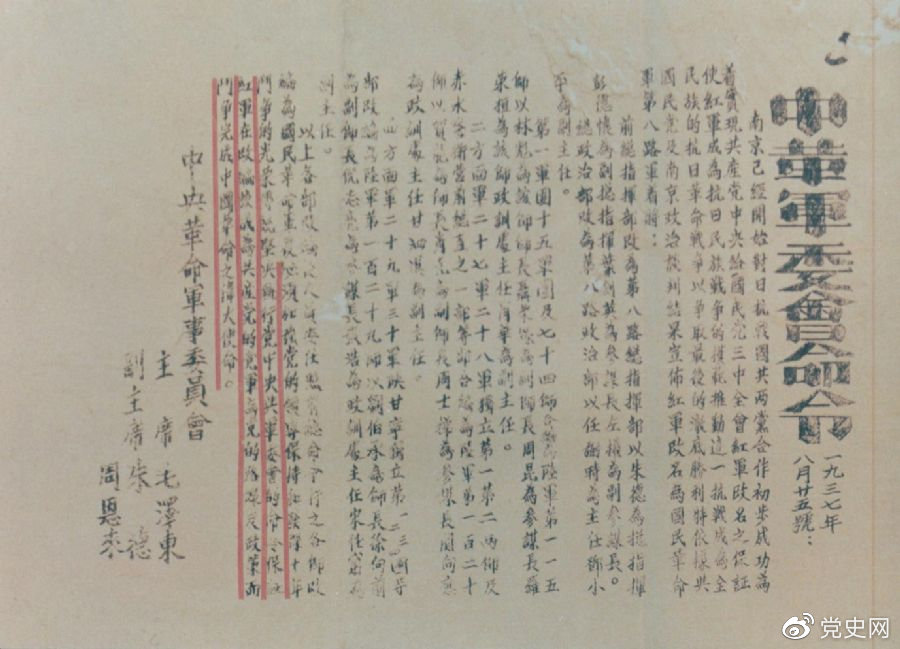 中革軍委會命令
一九三七年
八月廿五號：
南京已經開始對日抗戰國共兩黨合作初步成功為
着實現共產党中央給國民党三中全會紅軍改名之保証
使紅軍成為抗日民族戰爭的模範推動這一抗戰成為全
民族的抗日革命戰爭以爭取最後的澈底勝利特依據共
國民党及南京政治談判結果宣佈紅軍改名為國民革命
軍第八路軍着將：
前總指揮部改為第八路總指揮部以朱德為總指揮
彭德懷為副總指揮葉劍英為參謀長左權為副參謀長。
總政治部改為第八路政治部以任弼時為主任鄧小
平為副主任。
第一軍團十五軍團及七十四師合編為陸軍第一一五
師以林彪為該師師長聶榮臻為副師長周昆為參謀長羅
榮桓為該師政訓處主任肖華為副主任。
二方面軍二十七軍二十八軍獨立第一第二兩師及
赤水警衛營前總直之一部等部合編為陸軍第一百二十
師以賀龍為師長肖克為副師長周士擇為參謀長關向應
為政訓處主任甘泗淇為副主任。
四方面軍二十九軍三十軍陝甘寧獨立第一二三四等
部改編為陸軍第一百二十九師以劉伯承為師長徐向前
為副師長倪志亮為參謀長張浩為政訓處主任宋任窮為
副主任。
以上各部改編後人員委任照前總命令行之各師改
編為國民革命軍後必須加強党的領導保持和發揮十年
鬥爭的光榮傳統堅決執行党中央與軍委會的命令保証
紅軍在改編後成為共產党的党軍為党的路線及政策而
鬥爭完成中國革命之偉大使命。
中央革命軍事委員會
主席毛澤東
副主席朱德
周恩來
党史网